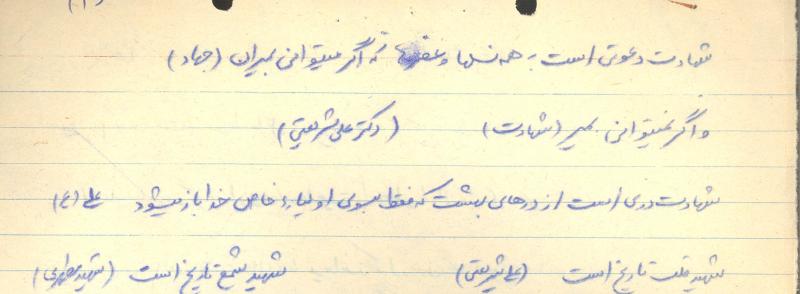 (۱)
شهادت دعوتی است به همه نسلها و عصرها که اگر میتوانی بمیران (جهاد)
و اگر نمیتوانی بمیر (شهادت) (دکتر علی شریعتی)
شهادت دری است از درهای بهشت که فقط بسوی اولیاء خاص خدا باز میشود علی (ع)
شهید قلب تاریخ است (علی شریعتی) شهید شمع تاریخ است (شهید مطهری)